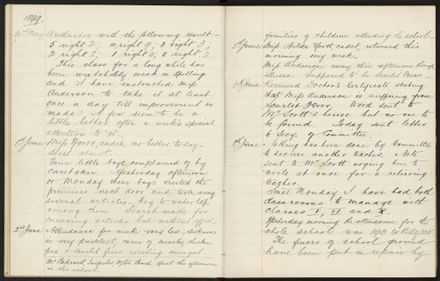 1899.
30th May Arithmetic with the following result:-
5 right 2; 4 right 9; 3 right 3;
2 right 2; 1 right 0; 0 right 2.
This class for a long while has
been wretchedly weak in spelling
and I have instructed Miss
Anderson to take it at least
once a day till improvement is
made. They seem to be a
little better after a week's special
attention to it.
1st June Miss Yorth, cadet, no better to-day.
Four little boys complained of by
caretaker. Yesterday afternoon
or Monday these boys visited the
premises. and took away
several articles, key to water tap
among them. Search made for
missing articles but without effect.
3rd June Attendance for week very low. Sickness
is very prevalent, cases of measles, chicken
pox & scarlet fever existing amongst
Mr Bakewell, Inspector, Wgton Board, spent the afternoon
in the school.
families of children attending the school.
5th June Miss Hilda Yorth, cadet, returned this
morning very weak.
Miss Anderson away this afternoon through
illness. Supposed to be
6th June Received Doctor's Certificate stating
that Miss Anderson is suffering from
Scarlet Fever. Word sent to
Mr Scott's house but no one to
be found. Today sent letter
to Secy. of Committee.
8th June Nothing has been done by Committee
to secure another teacher. Note
sent to Mr Scott urging him to
write at once for a relieving
teacher.
Since Monday I have had both
classrooms to manage with
classes
Yesterday morning the attendance for the
whole school was 190
The fence of school ground
have been put in repair by